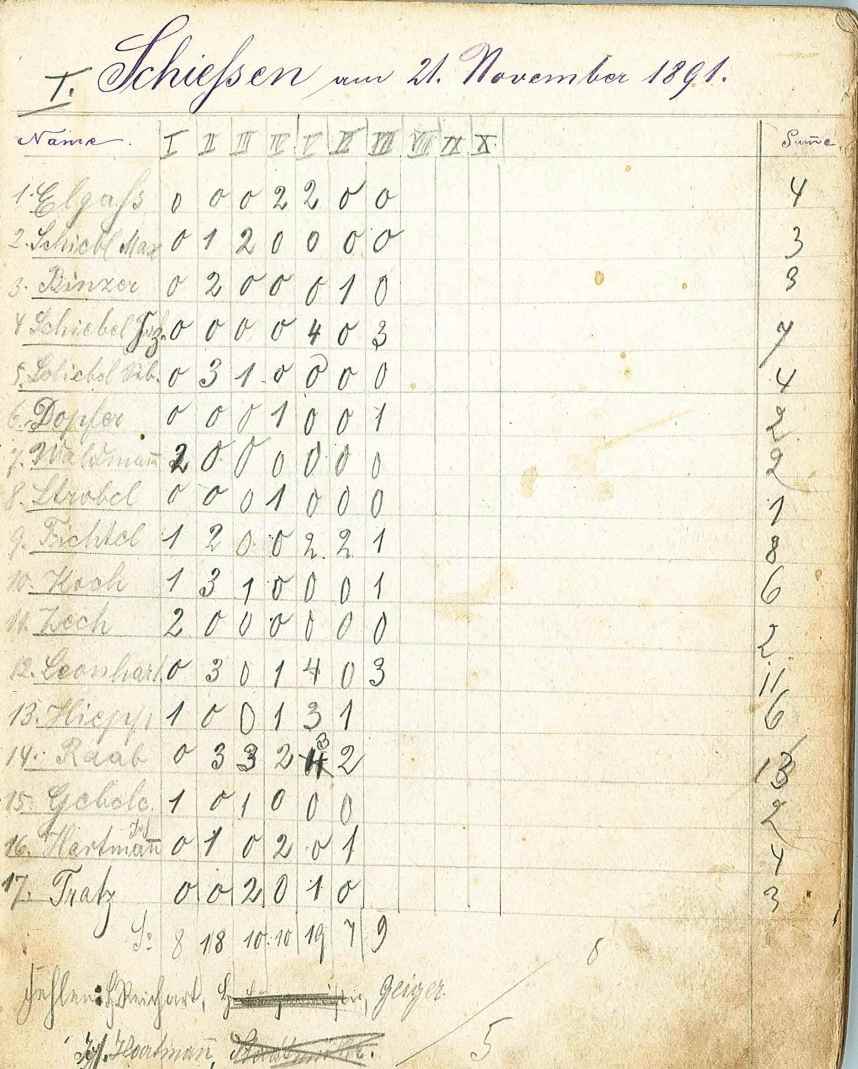 I. Schießen am 21. November 1891.
Name. I II III IV V VI VII VIII IX X Sum̄e
1. Elgaß 0 0 0 2 2 0 0 4
2. Schiebl Max 0 1 2 0 0 0 0 3
3. Binzer 0 2 0 0 0 1 0 3
4 Schiebel 0 0 0 0 4 0 3 7
5. Schiebel 0 3 1 0 0 0 0 4
6. Dopfer 0 0 0 1 0 0 1 2
7. Waldmañ 2 0 0 0 0 0 0 2
8. Strobel 0 0 0 1 0 0 0 1
9. Fichtel 1 2 0 0 2 2 1 8
10. Koch 1 3 1 0 0 0 1 6
11. Zech 2 0 0 0 0 0 0 2
12. Leonhart 0 3 0 1 4 0 3 11
13. Hiepp 1 0 0 1 3 1 6
14. Raab 0 3 3 2 3 2 13
15. 1 0 1 0 0 0 2
16. Hartmañ 0 1 0 2 0 1 4
17. Tratz 0 0 2 0 1 0 3
S: 8 18 10 10 19 7 9
Fehlen: Reichart, Geiger
Hartmañ 5